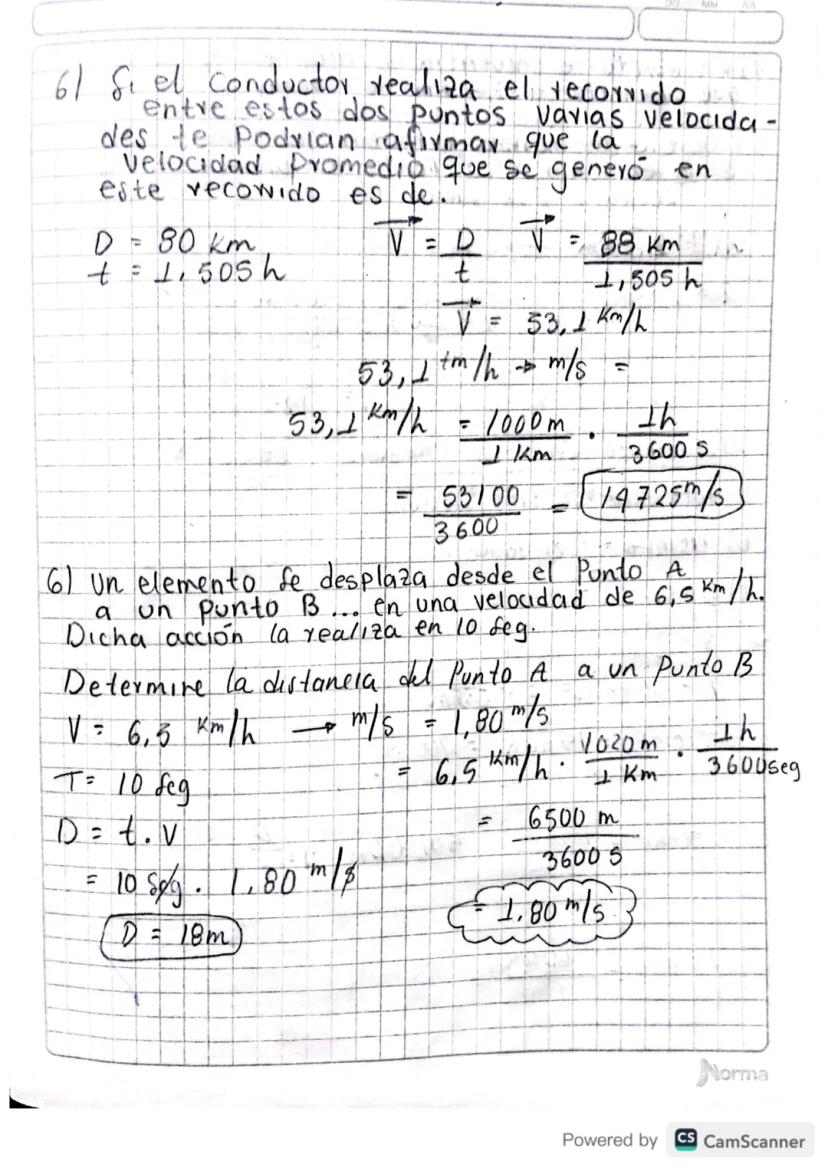 DD MM AA
6) Si el conductor realiza el recorrido
entre estos dos puntos varias velocida-
des te podrian afirmar que la
velocidad promedio que se generó en
este recorrido es de.
D = 80 km V = D/t V = 88 km / 1,505 h
t = 1,505 h
V = 53,1 Km/h
53,1 tm/h → m/s =
53,1 Km/h = 1000 m / 1 Km · 1h / 3600 s
= 53100 / 3600 = 14725 m/s
6) Un elemento se desplaza desde el Punto A
a un punto B... en una velocidad de 6,5 Km/h.
Dicha acción la realiza en 10 seg.
Determine la distancia del Punto A a un Punto B
V = 6,5 Km/h → m/s = 1,80 m/s
T = 10 seg = 6,5 Km/h · 1020 m / 1 Km · 1h / 3600 seg
D = t . V = 6500 m / 3600 s
= 10 seg . 1,80 m/s
= 1,80 m/s
D = 18m
Norma
Powered by CS CamScanner